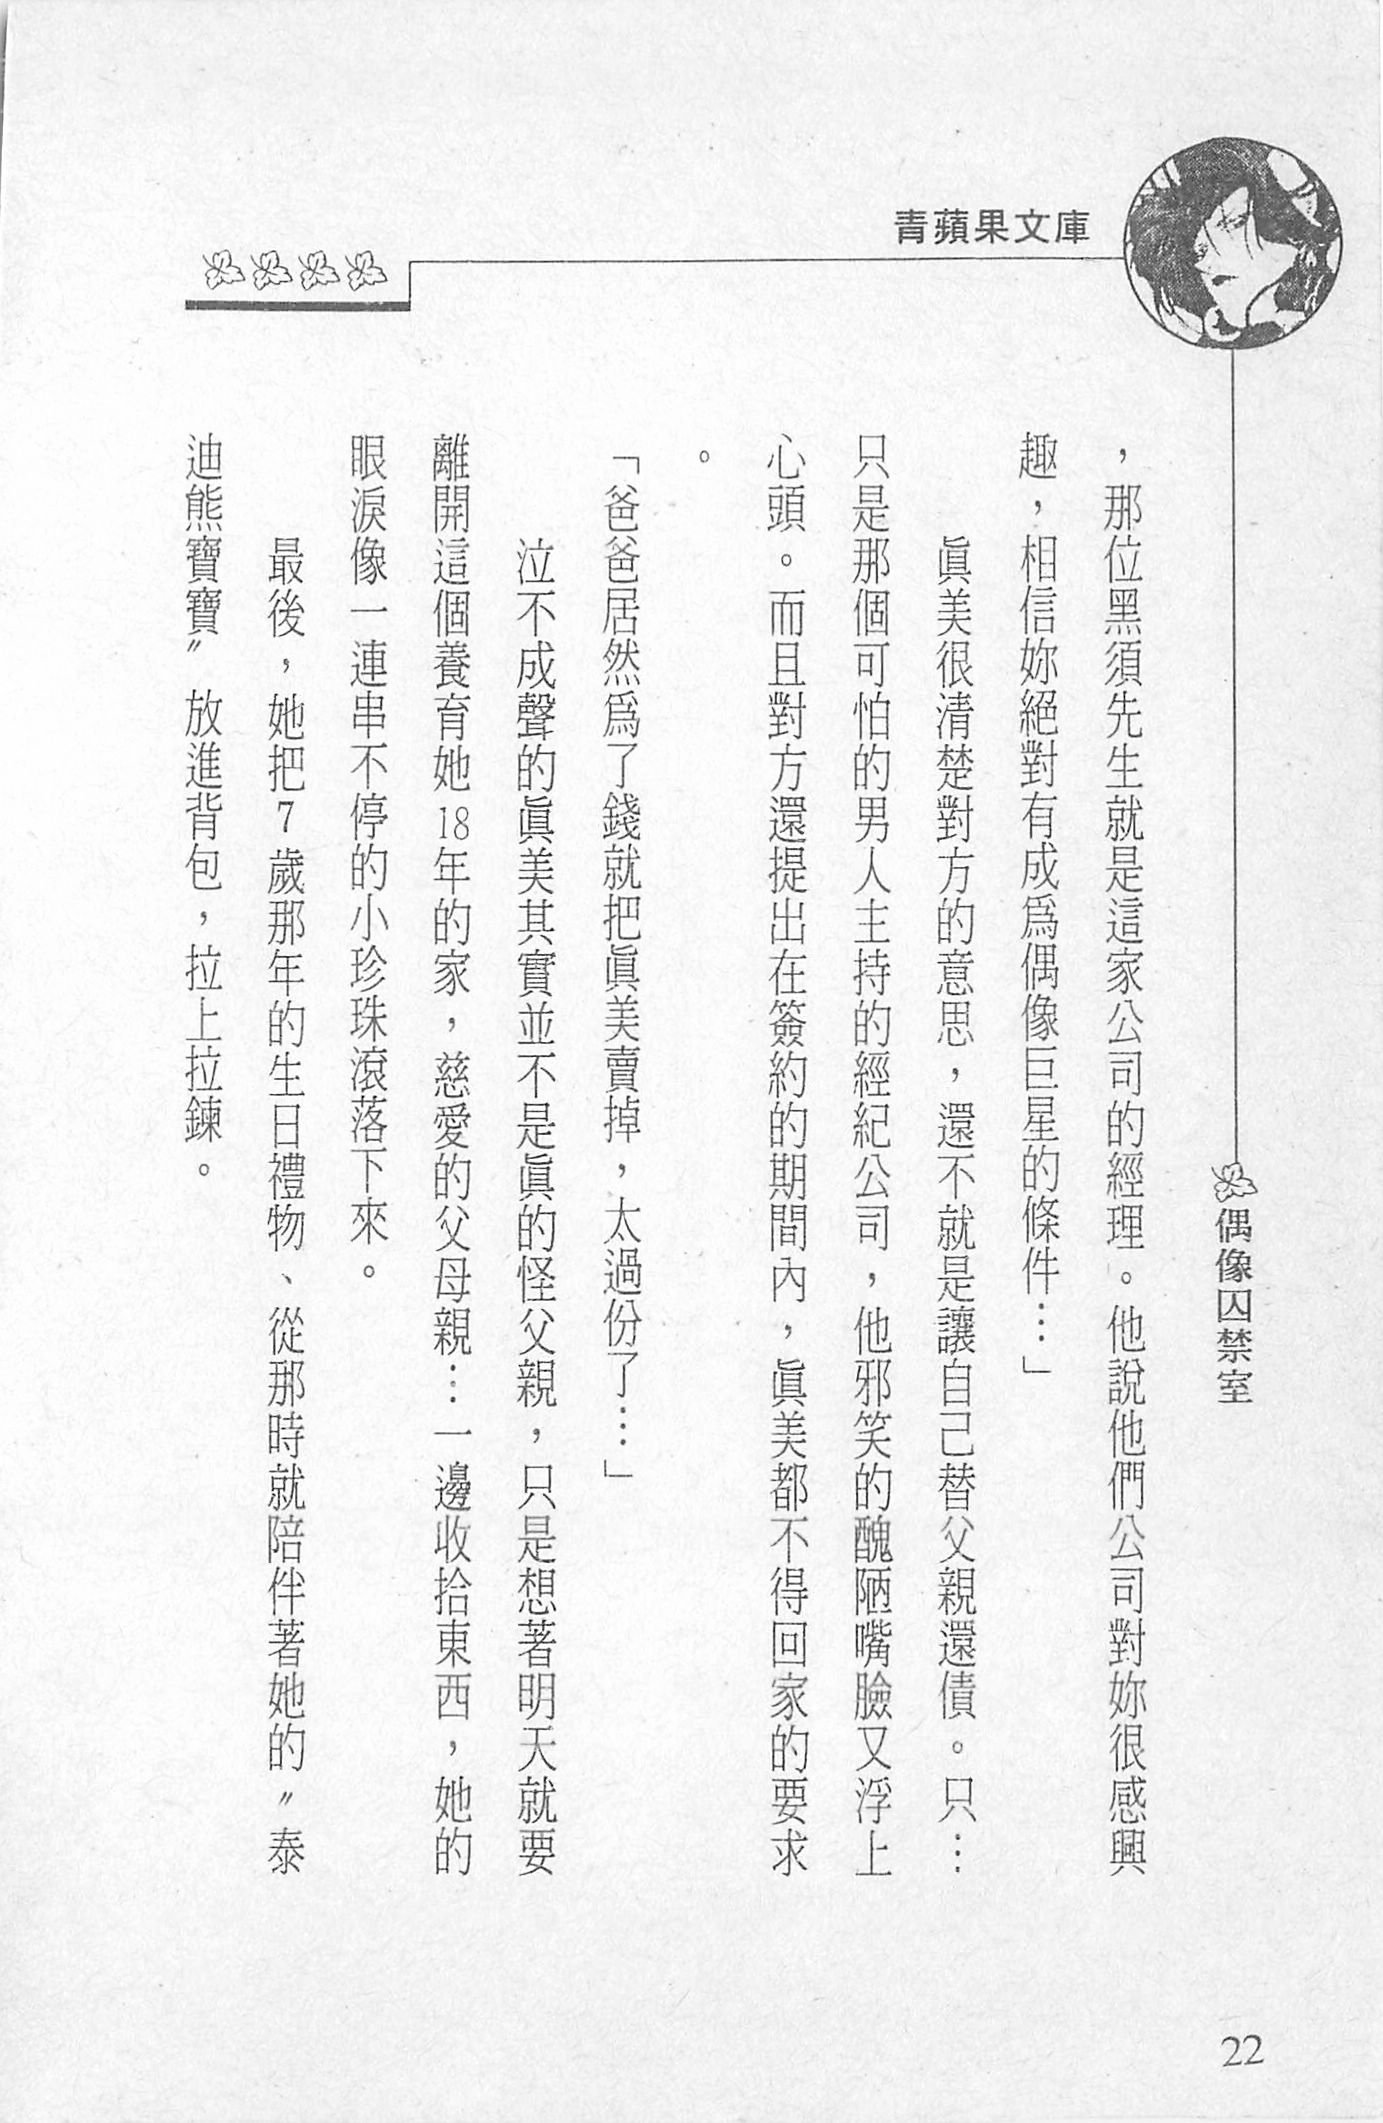 青蘋果文庫
偶像囚禁室
，那位黑須先生就是這家公司的經理。他說他們公司對妳很感興
趣，相信妳絕對有成爲偶像巨星的條件…」
眞美很清楚對方的意思，還不就是讓自己替父親還債。只…
只是那個可怕的男人主持的經紀公司，他邪笑的醜陋嘴臉又浮上
心頭。而且對方還提出在簽約的期間內，眞美都不得回家的要求
。
「爸爸居然爲了錢就把眞美賣掉，太過份了…」
泣不成聲的眞美其實並不是眞的怪父親，只是想著明天就要
離開這個養育她18年的家，慈愛的父母親…一邊收拾東西，她的
眼淚像一連串不停的小珍珠滾落下來。
最後，她把7歲那年的生日禮物、從那時就陪伴著她的〞泰
迪熊寶寶〞放進背包，拉上拉鍊。
22